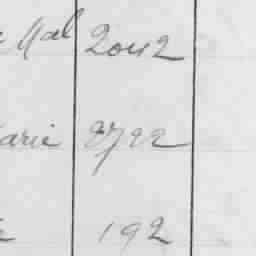 Mal 2042
arie 8722
192